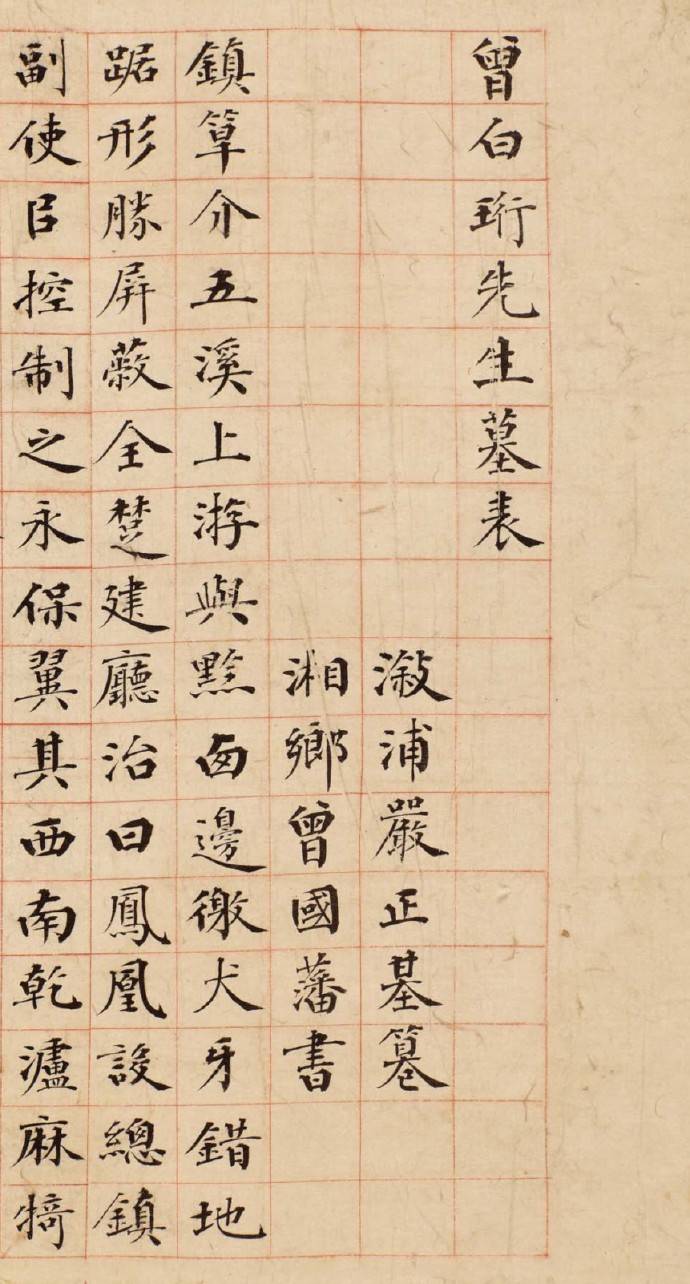 曾白珩先生墓表
溆浦嚴正基篹
湘鄉曾國藩書
鎮筸介五溪上游與黔甸邊徼犬牙錯地
踞形勝屏蔽全楚建廳治曰鳳凰設總鎮
副使㠯控制之永保翼其西南乾瀘麻犄